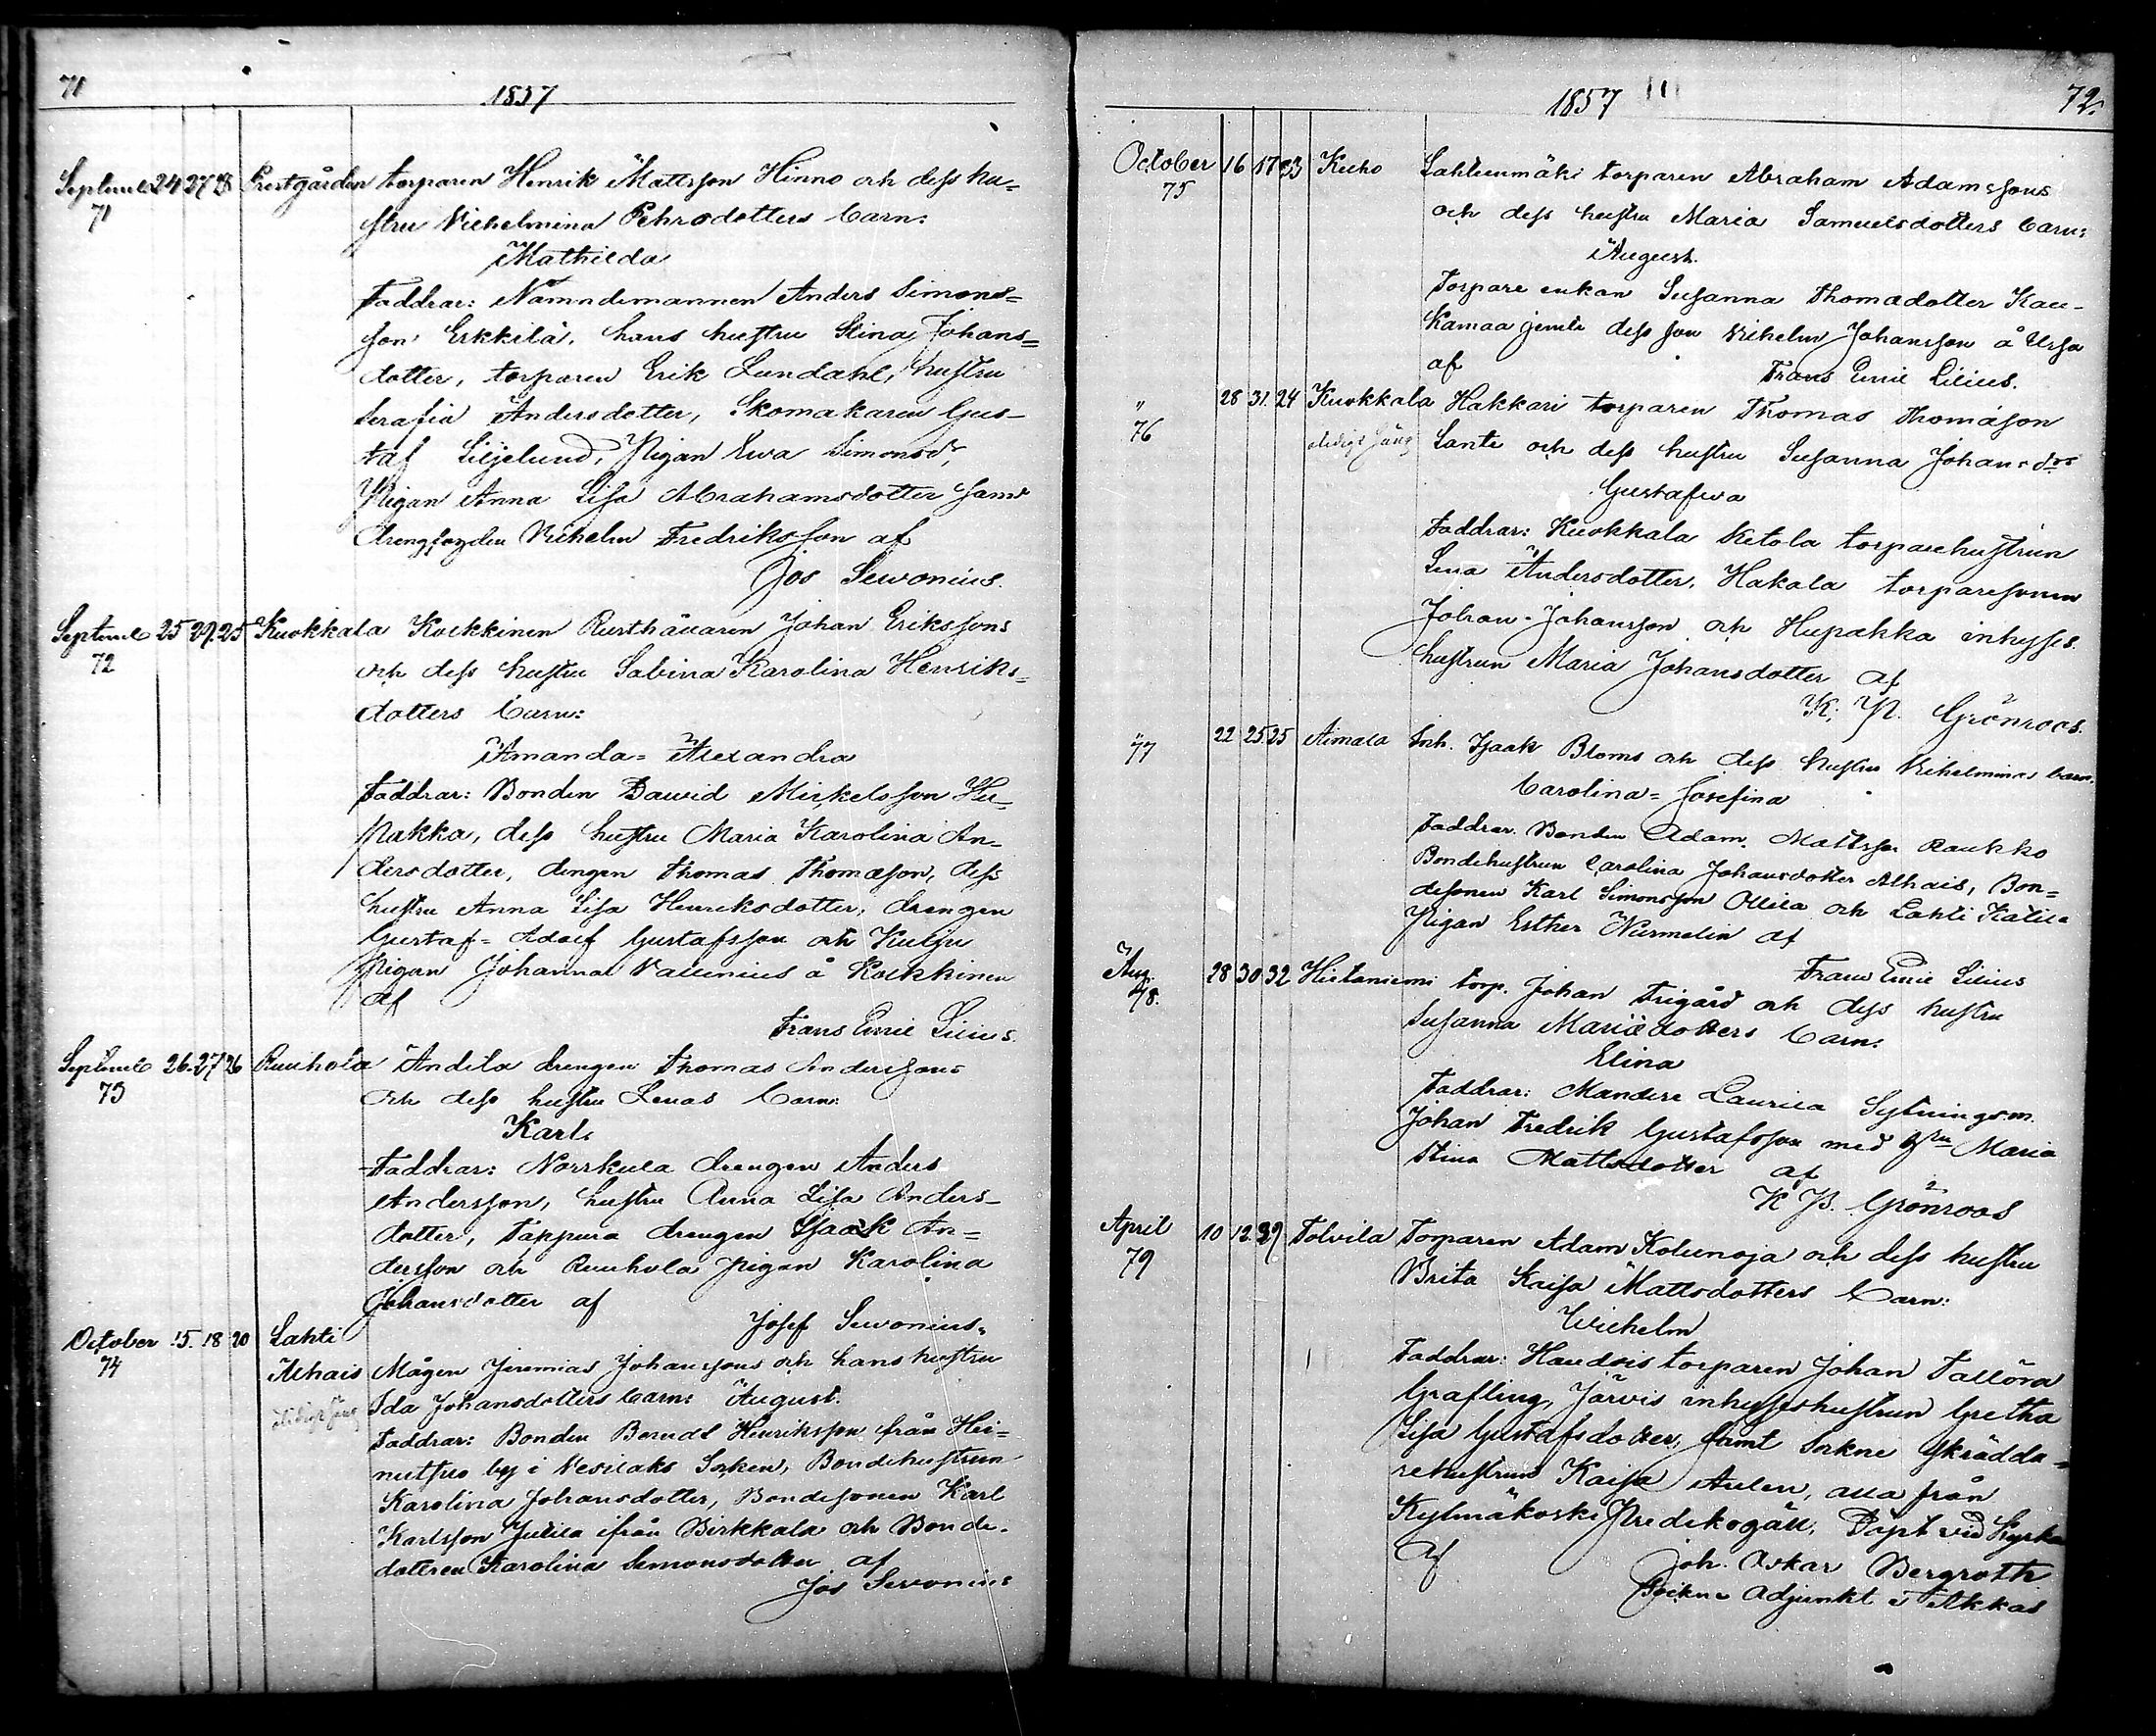 71
1857
Septemb 24 27 28 Prestgården torparen Henrik Mattsson Hinno och dess hu=
71 stru Vilhelmina Pehrsdotters barn:
Mathilda
Faddrar: Nämndemannen Anders Simons=
son Erkkilä, hans hustru Stina Johans=
dotter, torparen Erik Lundahl, hustru
Serafia Andersdotter, Skomakaren Gus-
taf Liljelund, Pigan Ewa Simonsdr,
Pigan Anna Lisa Abrahamsdotter samt
drengfogden Vilhelm Fredriksson af
Jos Sewonius.
Septemb 25 27. 25 Kuokkala Kockkinen Rusthållaren Johan Erikssons
72 och dess hustru Sabina Karolina Henriks=
dotters barn:
Amanda= Alexandra
Faddrar: Bonden David Mickelsson Hu-
pakka, dess hustru Maria Karolina An-
dersdotter, dengen Thomas Thomasson, dess
hustru Anna Lisa Henriksdotter, drengen
Gustaf= Adolf Gustafsson och Kulju
Pigan Johanna Vallenius å Kockkinen
af
Frans Emil Lilius.
Septemb 26. 27 26 Ruuhola Andila drengen Thomas Anderssons
73 och dess hustru Lenas barn:
Karl.
Faddrar: Norrkula drengen Anders
Andersson, hustru Anna Lisa Anders-
dotter, Tappura drengen Isaak An=
dersson och Ruuhola pigan Karolina
Johansdotter af
Josef Sewonius.
October 15. 18 20 Lahti
74 Alhais Mågen Jeremias Johanssons och hans hustru
Ida Johansdotters barn: August.
Faddrar: Bonden Berndt Henriksson från Hei-
nutsuo by i Vesilaks Socken, Bondehustrun
Karolina Johansdotter, Bondesonen Karl
Karlsson Julila ifrån Birkkala och Bonde-
dottren Karolina Simonsdotter af
Jos Sewonius
1857
72.
October 16 17 33 Keiho Lahteenmäki torparen Abraham Adamssons
75 och dess hustru Maria Samuelsdotters barn:
August.
Torpare enkan Susanna Thomadotter Kau-
kamaa jemte dess son Vilhelm Johansson å Ursa
af Frans Emil Lilius.
" 28 31. 24 Kuokkala Hakkari torparen Thomas Thomasson
76 Sante och dess hustru Susanna Johansdrs
Gustafwa
Faddrar: Kuokkala Ketola torparehustrun
Lena Andersdotter, Hakala torparesonen
Johan Johansson och Hupakka inhyses.
hustrun Maria Johansdotter af
K. P. Grönroos.
" 77 22 25. 25 Aimala Inh. Isaak Bloms och dess hustru Vilhelminas barn.
Carolina= Josefina
Faddrar. Bonden Adam Mattsson Raukko
Bondehustrun Carolina Johansdotter Alhais, Bon=
desonen Karl Simonsson Ollila och Lahti Katila
Pigan Esther Nurmelin af
Frans Emil Lilius
Aug. 28 30 32 Hietaniemi torp. Johan Frigård och dess hustru
78. Susanna Mariædotters barn.
Elina
Faddrar: Mandere Laurila Sytningsm.
Johan Fredrik Gustafsson med hru Maria
Stina Mattsdotter af
K. P. Grönroos
April 10 12. 39 Tolvila Torparen Adam Kolunoja och dess hustru
79 Brita Kaisa Mattsdotters barn:
Wilhelm
Faddrar: Haudois torparen Johan Tallöra
Grafling, Järvis inhyseshustrun Gretha
Lisa Gustafsdotter, samt Sokne skrädda=
rehustrun Kaisa Aulen, alla från
Kylmäkoski Predikogäll, Döpt vid Kyrkan
af Joh. Oskar Bergroth
Sockne Adjunkt i Akkas